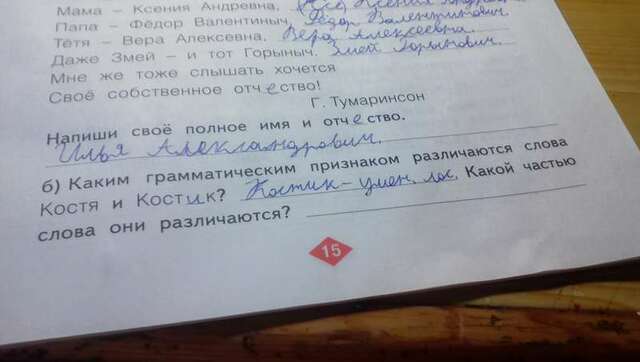 Мама – Ксения Андревна, Ксения
Папа – Фёдор Валентиныч, Фёдор Валентинович
Тётя – Вера Алексевна. Вера Алексеевна.
Даже Змей – и тот Горыныч. Змей Горынович.
Мне же тоже слышать хочется
Своё собственное отчество!
Г. Тумаринсон
Напиши своё полное имя и отчество.
Илья Александрович.
б) Каким грамматическим признаком различаются слова
Костя и Костик? Костик – умен. лас. Какой частью
слова они различаются?
15